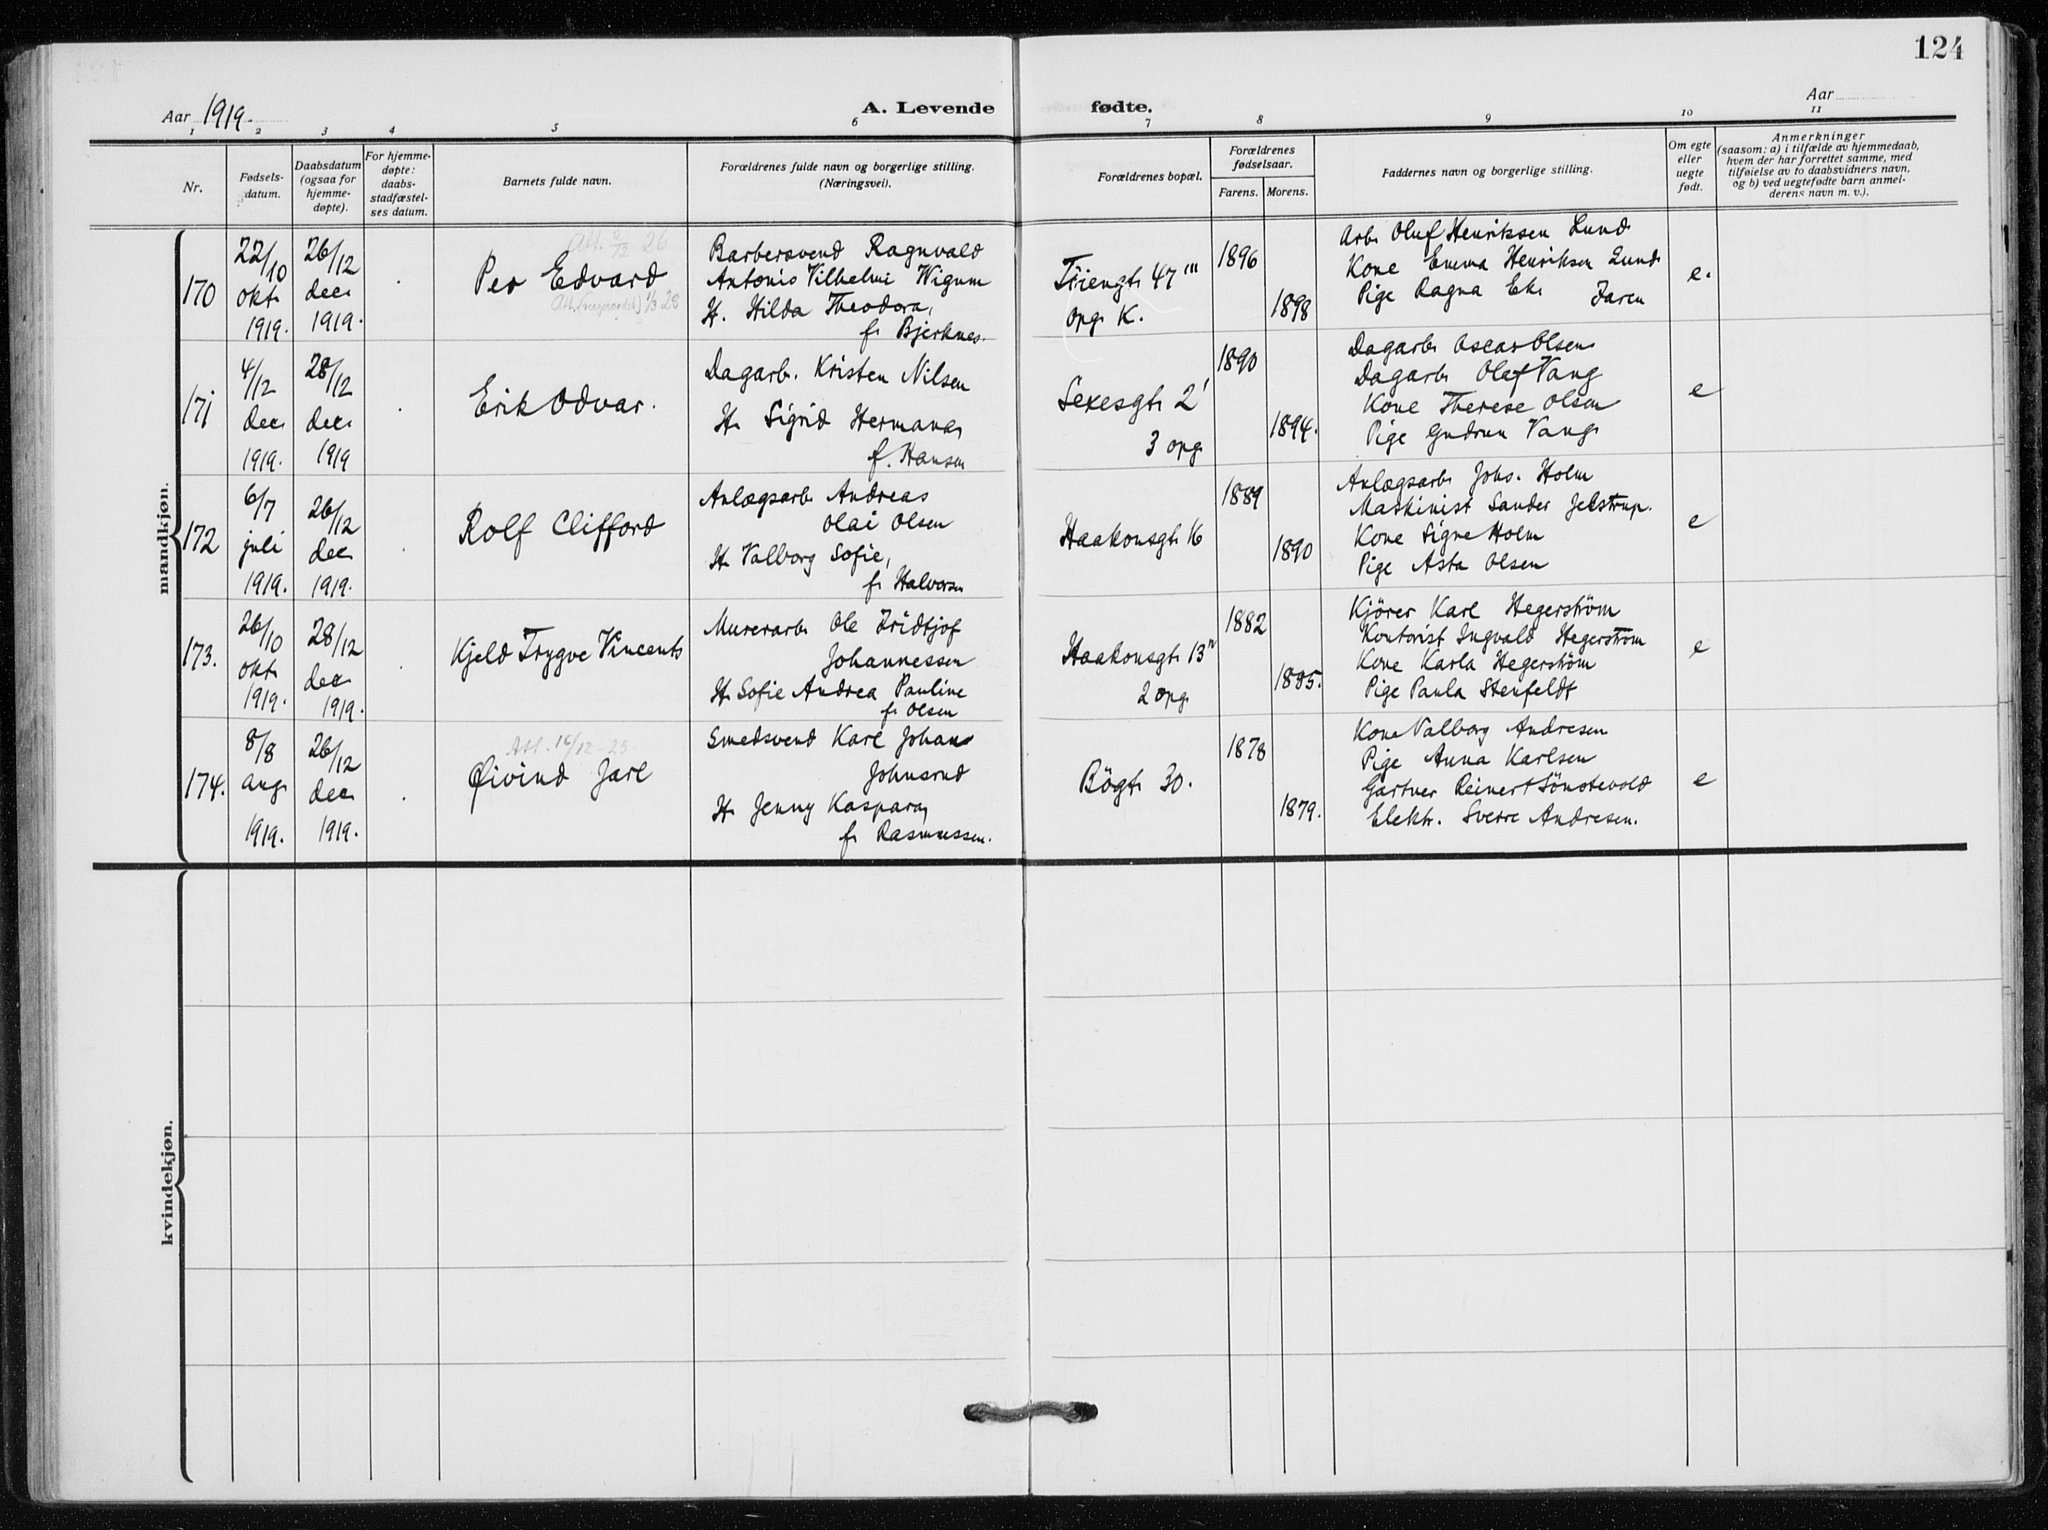 124
Aar 1919.
A. Levende
fødte.
Aar
1 2 3 4 5 6 7 8 9 10 11
Nr.
Fødsels-
datum.
Daabsdatum
(ogsaa for
hjemme-
døpte).
For hjemme-
døpte:
daabs-
stadfæstel-
ses datum.
Barnets fulde navn.
Forældrenes fulde navn og borgerlige stilling.
(Næringsvei).
Forældrenes bopæl.
Forældrenes
fødselsaar.
Farens.
Morens.
Faddernes navn og borgerlige stilling.
Om egte
eller
uegte
født.
Anmerkninger
(saasom: a) i tilfælde av hjemmedaab,
hvem der har forrettet samme, med
tilføielse av to daabsvidners navn,
og b) ved uegtefødte barn anmel-
derens navn m. v.).
mandkjøn.
170
22/10
okt.
1919.
26/12
dec.
1919.
Att. 2/12 26
Per Edvard
1/3 28
Barbersvend Ragnvald
Antonis Vilhelm Wigum
H. Hilda Theodora,
f. Bjerknes.
47'''
opg. K.
1896
1898
Arb. Oluf Henriksen Lund
Kone Emma Henriksen Lund
Pige Ragna Ek. Jaren
e.
171
4/12
dec.
1919.
28/12
dec.
1919
Erik Odvar.
Dagarb. Kristen Nilsen
H. Sigrid Hermana,
f. Hansen
Sexesgt. 2'
3 opg.
1890
1894.
Dagarb. Oscar Olsen
Dagarb. Olef Vang
Kone Therese Olsen
Pige Gudrun Vang.
e
172
6/7
juli
1919.
26/12
dec.
1919.
Rolf Clifford
Anlægsarb. Andreas
Olai Olsen
H. Valborg Sofie,
f. Halvorsen
Haakonsgt. 16
1889
1890
Anlægsarb. Johs. Holm
Maskinist Sander Jelstrup.
Kone Signe Holm
Pige Asta Olsen
e
173.
26/10
okt.
1919.
28/12
dec.
1919.
Kjeld Trygve Vincents
Murerarb. Ole Fridtjof
Johannessen
H. Sofie Andrea Pauline
f. Olsen
Haakonsgt. 13''
2 opg.
1882
1885.
Kjörer Karl Hegerström
Kontorist Ingvald Hegerström
Kone Karla Hegerström
Pige Paula Stenfeldt
e
174.
8/8
aug.
1919.
26/12
dec.
1919.
Att. 16/12-25.
Øivind Jarl
Smedsvend Karl Johan
Johnsrud
H. Jenny Kaspara,
f. Rasmussen.
Bögt. 30.
1878
1879.
Kone Valborg Andresen
Pige Anna Karlsen
Gartner Reinert Sönstevold
Elektr. Sverre Andresen.
e
kvindekjøn.